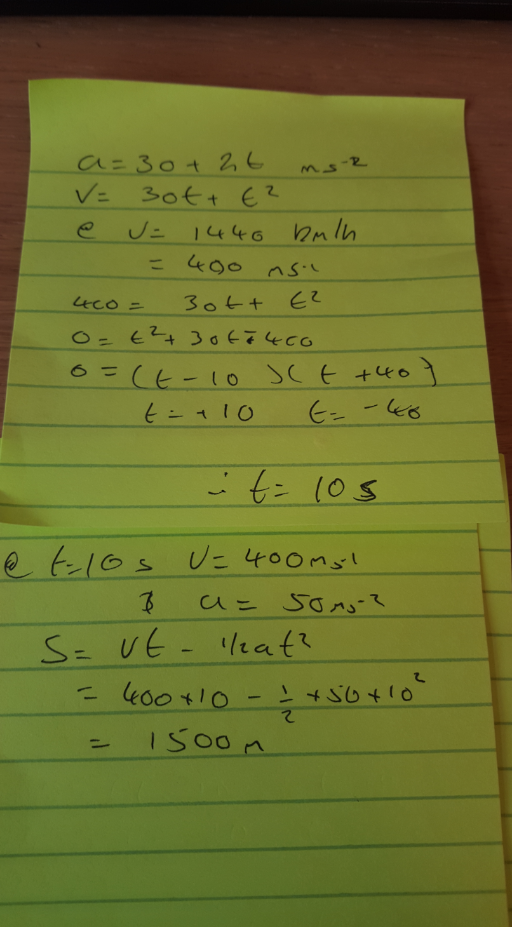 a = 30 + 2t ms-2
V = 30t + t2
@ V = 1440 km/h
= 400 ms-1
400 = 30t + t2
0 = t2 + 30t - 400
0 = (t - 10)(t + 40)
t = +10 t = -40
∴ t = 10s
@ t=10s V = 400ms-1
& a = 50ms-2
S = Vt - 1/2at2
= 400*10 - 1/2 *50*10 2
= 1500m